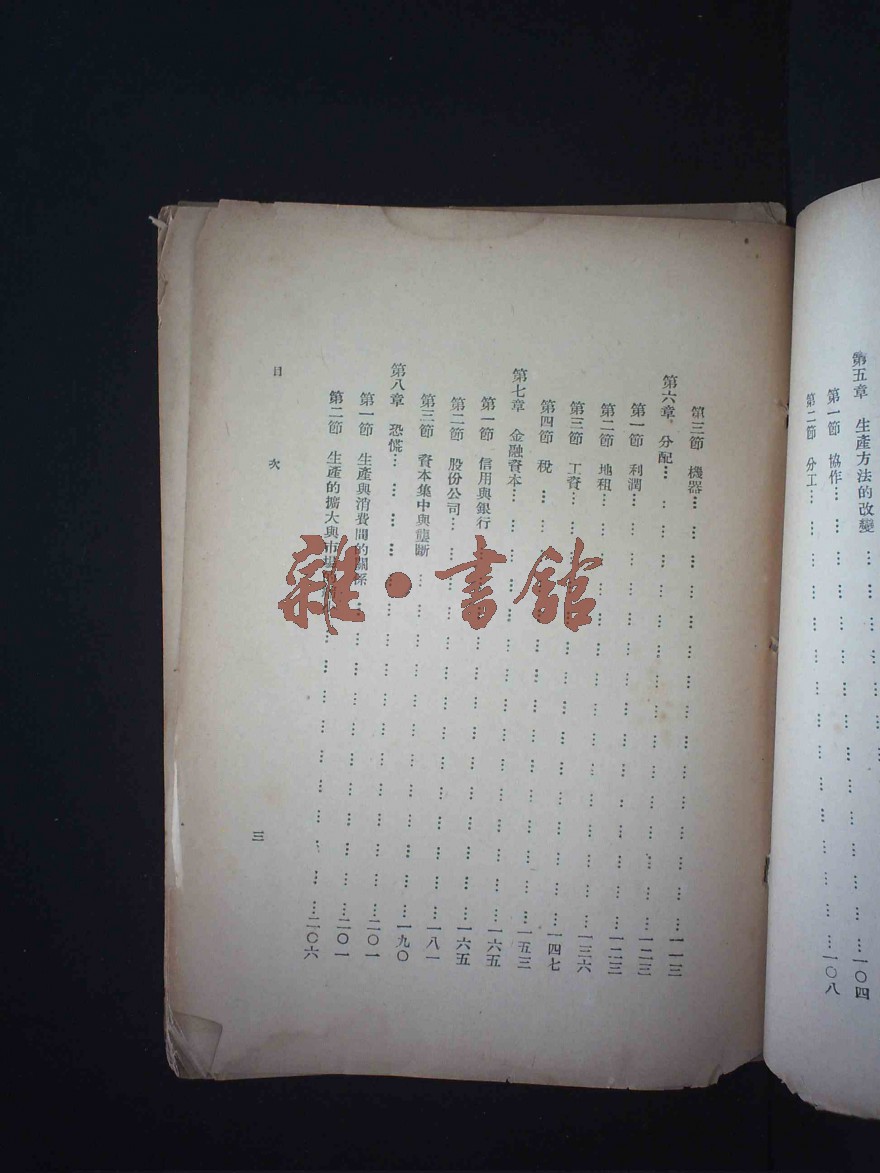 第五章 生產方法的改變………………………………
第一節 協作………………………………一〇四
第二節 分工………………………………一〇八
第三節 機器………………………………一一三
第六章 分配………………………………一二三
第一節 利潤………………………………一二三
第二節 地租………………………………一三六
第三節 工資………………………………一四七
第四節 稅………………………………一五三
第七章 金融資本………………………………一六五
第一節 信用與銀行………………………………一六五
第二節 股份公司………………………………一八一
第三節 資本集中與壟斷………………………………一九〇
第八章 恐慌………………………………二〇一
第一節 生產與消費間的關係………………………………二〇一
第二節 生產的擴大與市場………………………………二〇六
目 次
三
雜·書館